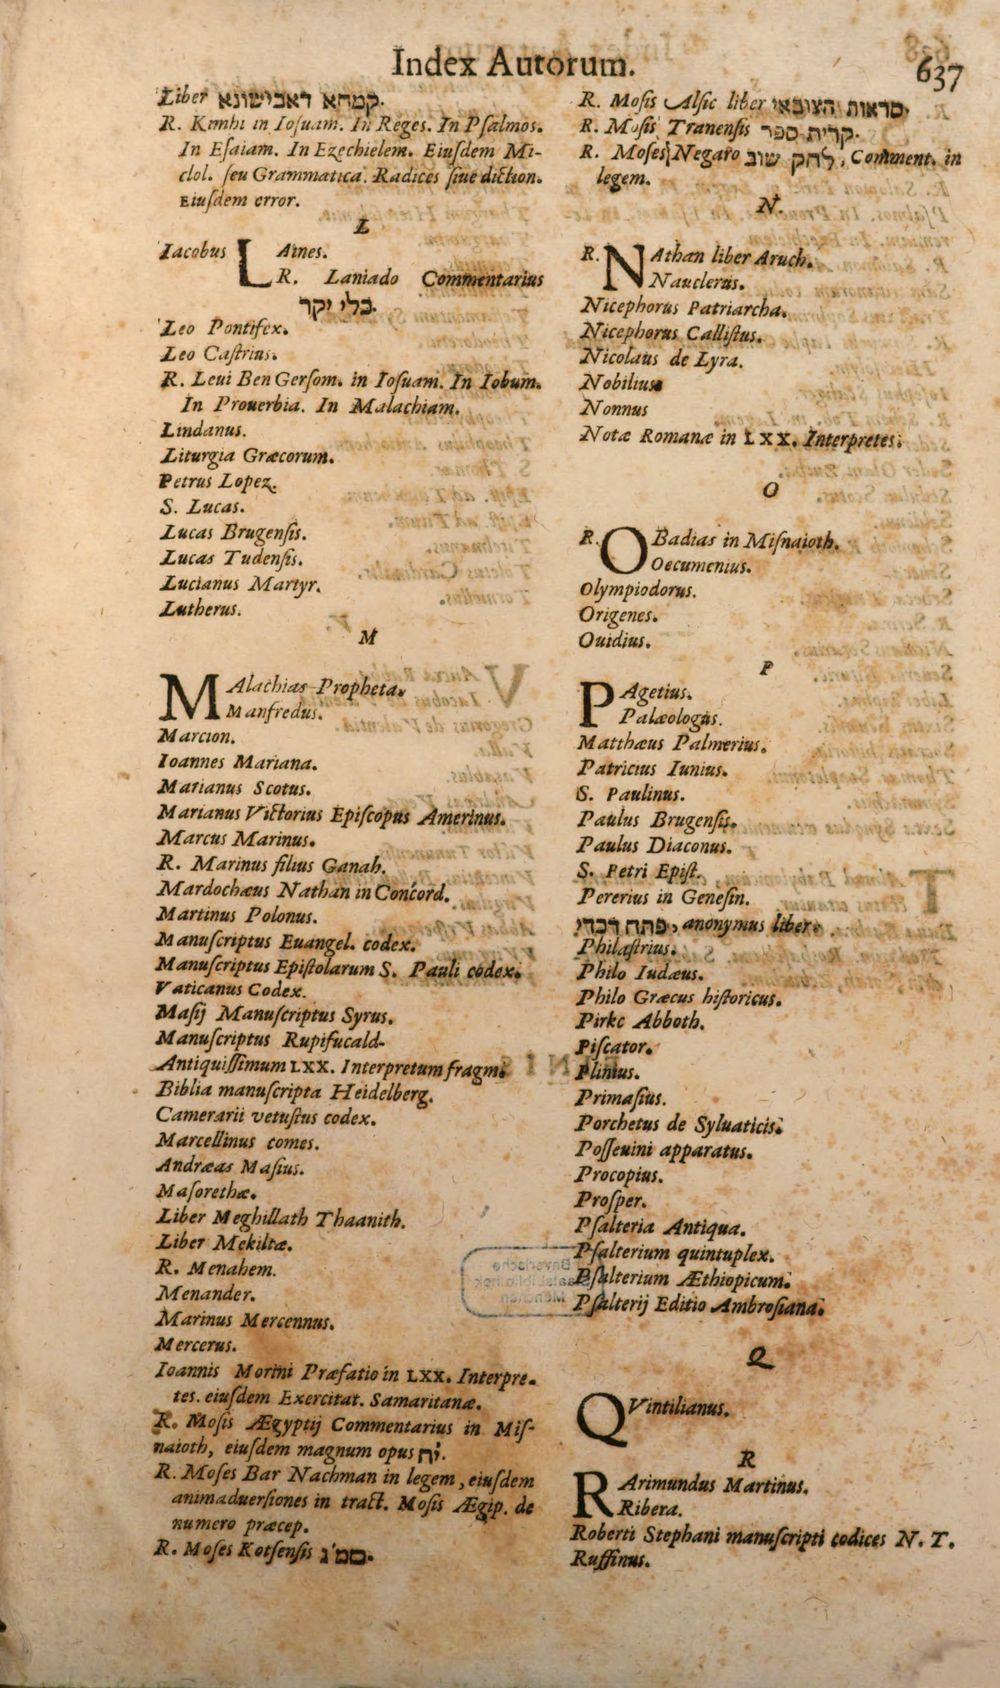 Index Autorum.
637
Liber קמחא דאבישונא.
R. Kimhi in Iosuam. In Reges. In Psalmos.
In Esaiam. In Ezechielem. Eiusdem Mi-
clol. seu Grammatica. Radices siue diction.
Eiusdem error.
L
Iacobus LAines.
R. Laniado Commentarius
כלי יקר.
Leo Pontifex.
Leo Castrius.
R. Leui Ben Gersom. in Iosuam. In Iobum.
In Prouerbia. In Malachiam.
Lindanus.
Liturgia Græcorum.
Petrus Lopez.
S. Lucas.
Lucas Brugensis.
Lucas Tudensis.
Lucianus Martyr.
Lutherus.
M
MAlachias Propheta.
Manfredus.
Marcion.
Ioannes Mariana.
Marianus Scotus.
Marianus Victorius Episcopus Amerinus.
Marcus Marinus.
R. Marinus filius Ganah.
Mardochæus Nathan in Concord.
Martinus Polonus.
Manuscriptus Euangel. codex.
Manuscriptus Epistolarum S. Pauli codex.
Vaticanus Codex.
Masij Manuscriptus Syrus.
Manuscriptus Rupifucald-
Antiquissimum LXX. Interpretum fragm.
Biblia manuscripta Heidelberg.
Camerarii vetustus codex.
Marcellinus comes.
Andræas Masius.
Masorethæ.
Liber Meghillath Thaanith.
Liber Mekiltæ.
R. Menahem.
Menander.
Marinus Mercennus.
Mercerus.
Ioannis Morini Præfatio in LXX. Interpre.
tes. eiusdem Exercitat. Samaritanæ.
R. Mosis Ægyptij Commentarius in Mis-
naioth, eiusdem magnum opus יח.
R. Moses Bar Nachman in legem, eiusdem
animaduersiones in tract. Mosis Ægip. de
numero præcep.
R. Moses Kotsensis סמ'ג.
R. Mosis Alsic liber מראות הצובאי.
R. Mosis Tranensis קרית ספר.
R. Moses Negaro לחק שוב, Comment. in
legem.
N.
R. NAthan liber Aruch.
Nauclerus.
Nicephorus Patriarcha.
Nicephorus Callistus.
Nicolaus de Lyra.
Nobilius
Nonnus
Notæ Romanæ in LXX. Interpretes.
O
R. OBadias in Misnaioth.
Oecumenius.
Olympiodorus.
Origenes.
Ouidius.
P
PAgetius.
Palæologus.
Matthæus Palmerius.
Patricius Iunius.
S. Paulinus.
Paulus Brugensis.
Paulus Diaconus.
S. Petri Epist.
Pererius in Genesin.
פתח דברי, anonymus liber.
Philastrius.
Philo Iudæus.
Philo Græcus historicus.
Pirke Abboth.
Piscator.
Plinius.
Primasius.
Porchetus de Syluaticis.
Posseuini apparatus.
Procopius.
Prosper.
Psalteria Antiqua.
Psalterium quintuplex.
Psalterium Æthiopicum.
Psalterij Editio Ambrosiana.
Q
QVintilianus.
R
RArimundus Martinus.
Ribera.
Roberti Stephani manuscripti codices N. T.
Ruffinus.